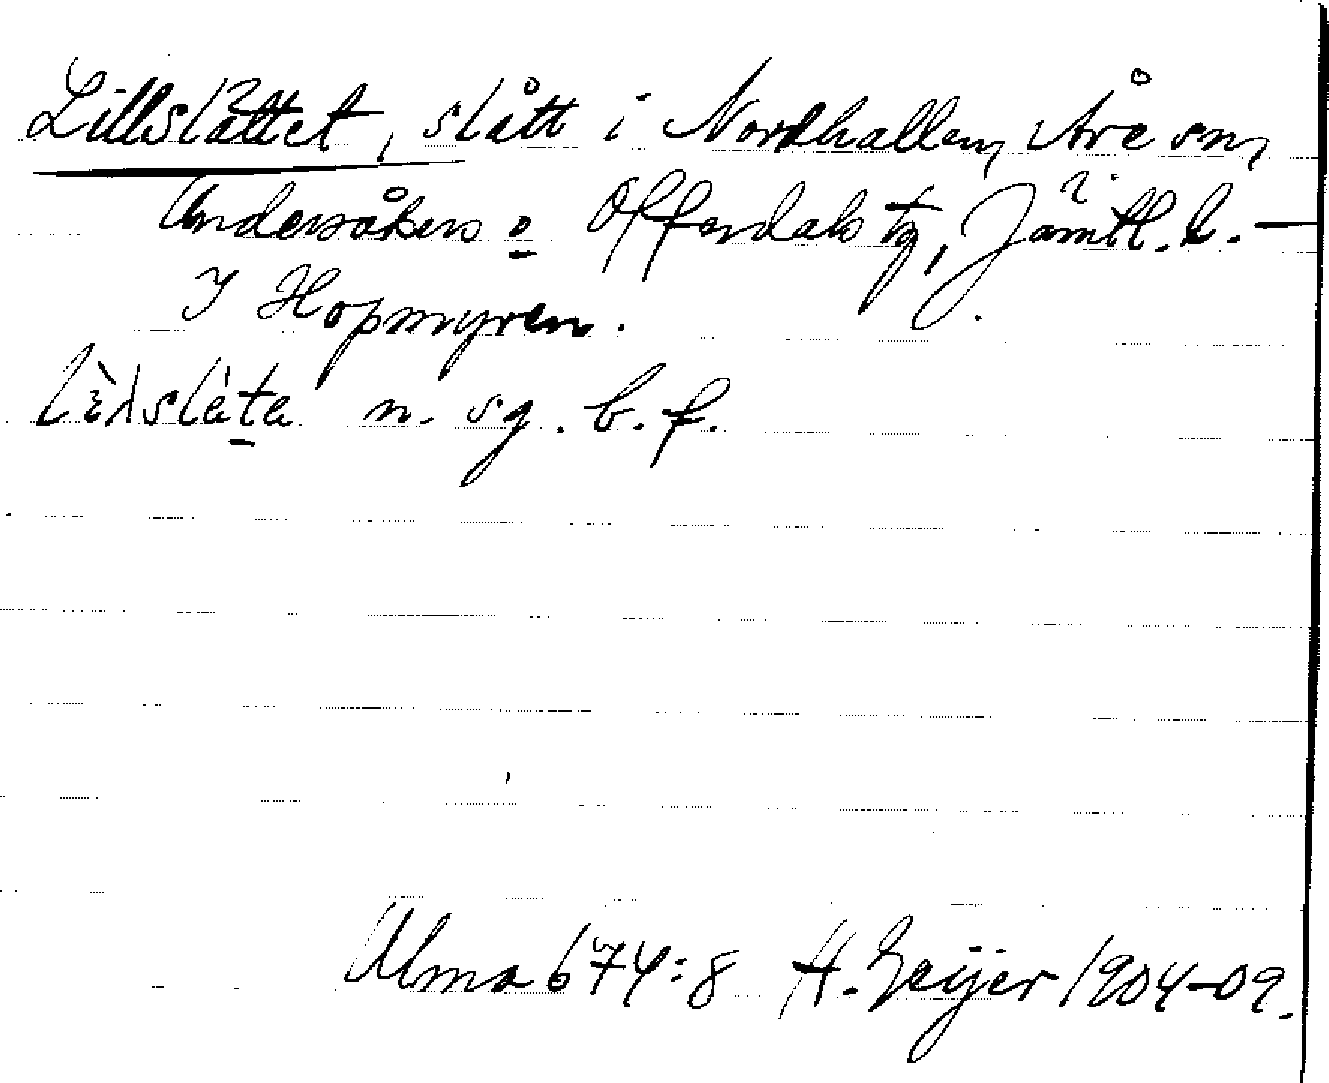 Lillslåttet, slått i Nordhallen, Åre sn,
Undersåkers o Offerdals tg, Jämtl. l. —
I Hopmyren.
n. sg. b. f.
Ulma 674:8 H. Geijer 1904-09.